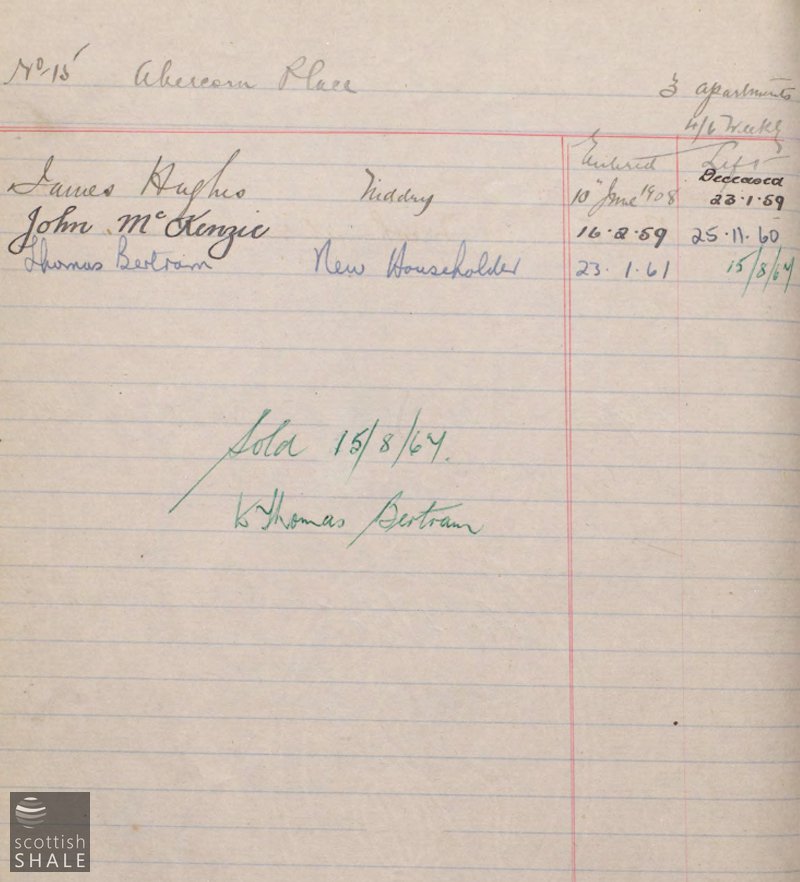 No 15 Abercorn Place
3 apartments
4/6 Weekly
Entered Left
Deceased
James Hughes Niddry 10" June 1908 23.1.59
John McKenzie 16.2.59 25.11.60
Thomas Bertram New Householder 23.1.61 15/8/67
Sold 15/8/67.
to Thomas Bertram
scottish
SHALE